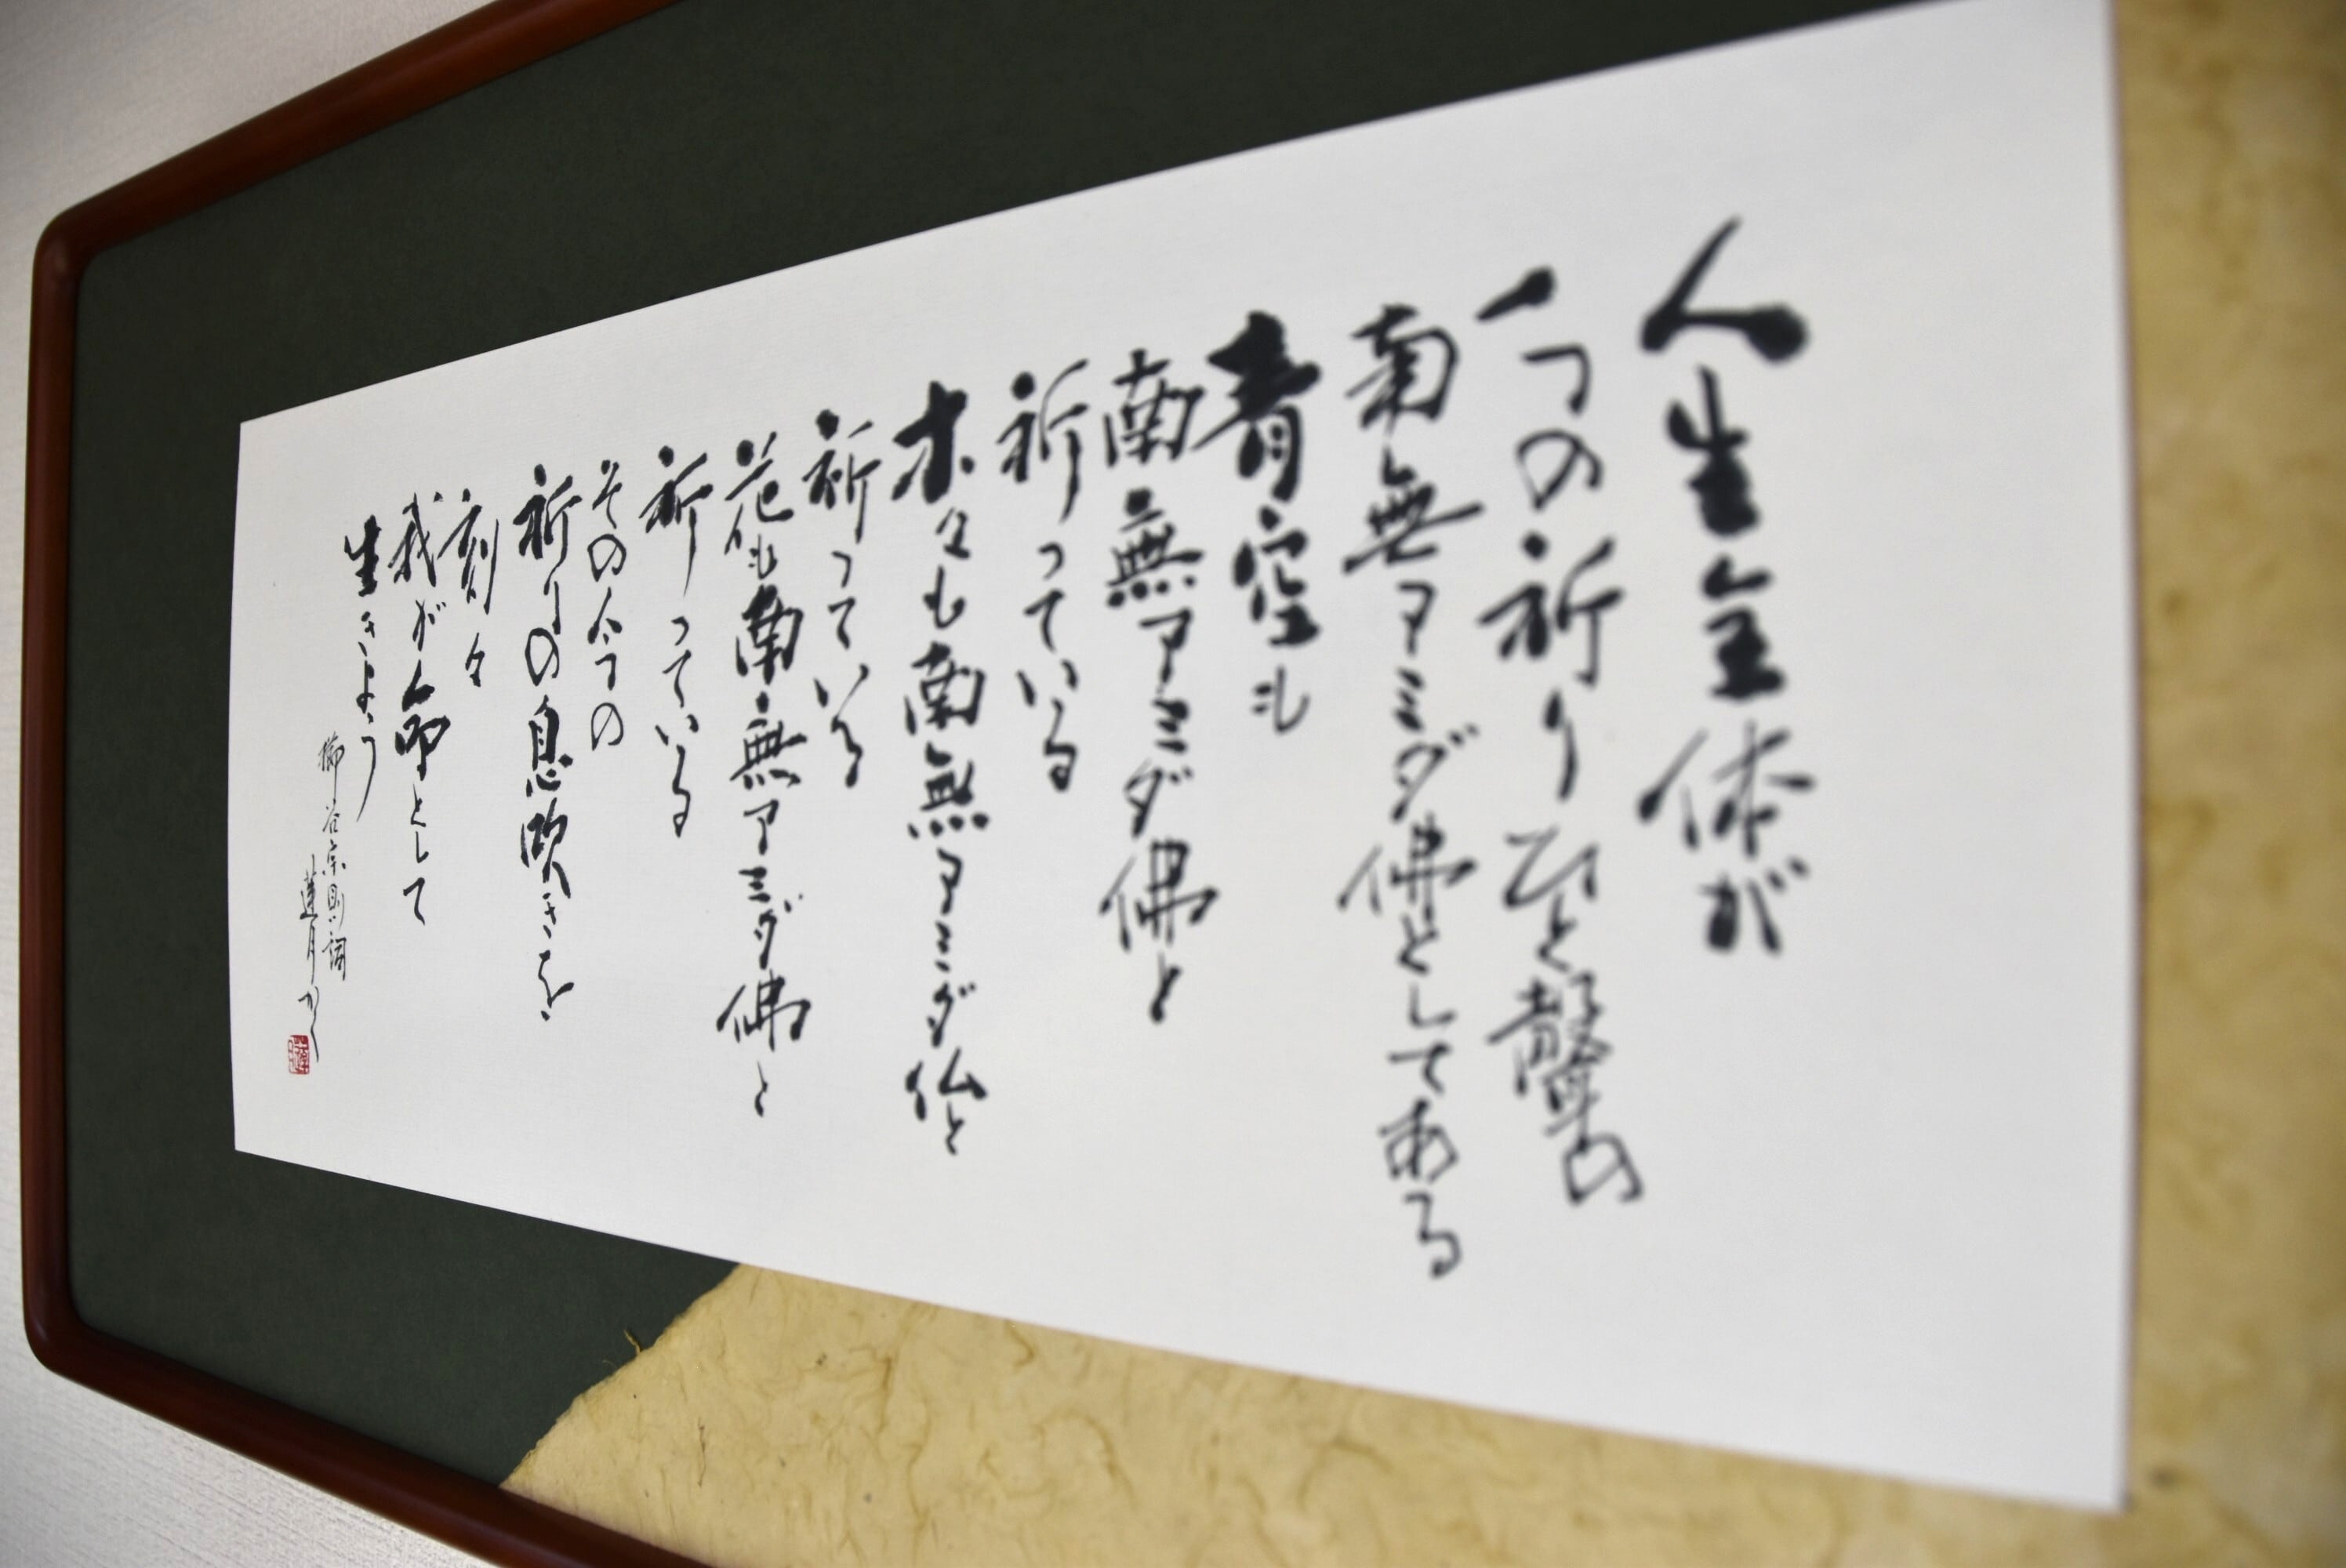 人生全体が
一つの祈りひと聲の
南無アミダ佛としてある
青空も
南無アミダ佛と
祈っている
木々も南無アミダ仏と
祈っている
花も南無アミダ佛と
祈っている
その全ての
祈りの息吹きを
刻々
我が命として
生きよう
櫛谷宗則詞
蓮月かく